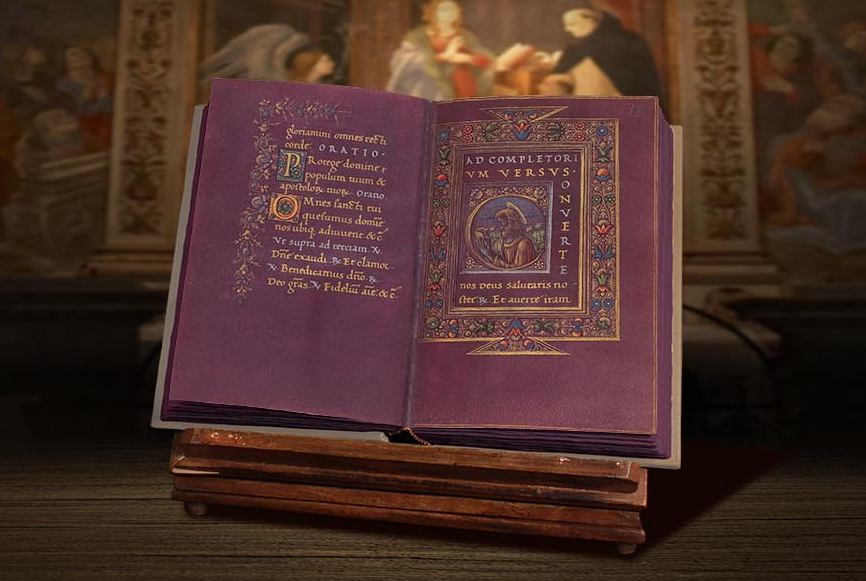 gloriamini omnes recti
corde· ORATIO·
PRotege domine
populum tuum &
apostoloꝝ tuoꝝ· Oratio
OMnes sancti tui
quesumus domie
nos ubiq; adiuvent &c̃
Vt supra ad terciam ℣·
Dñe exaudi ℟· Et clamor
℣· Benedicamus dño ℟·
Deo grãs ℣· Fideliũ aĩe &c̃
78
AD COMPLETORI
VM VERSVS·
CONVERTE
nos Deus salutaris no
ster ℟· Et auerte iram